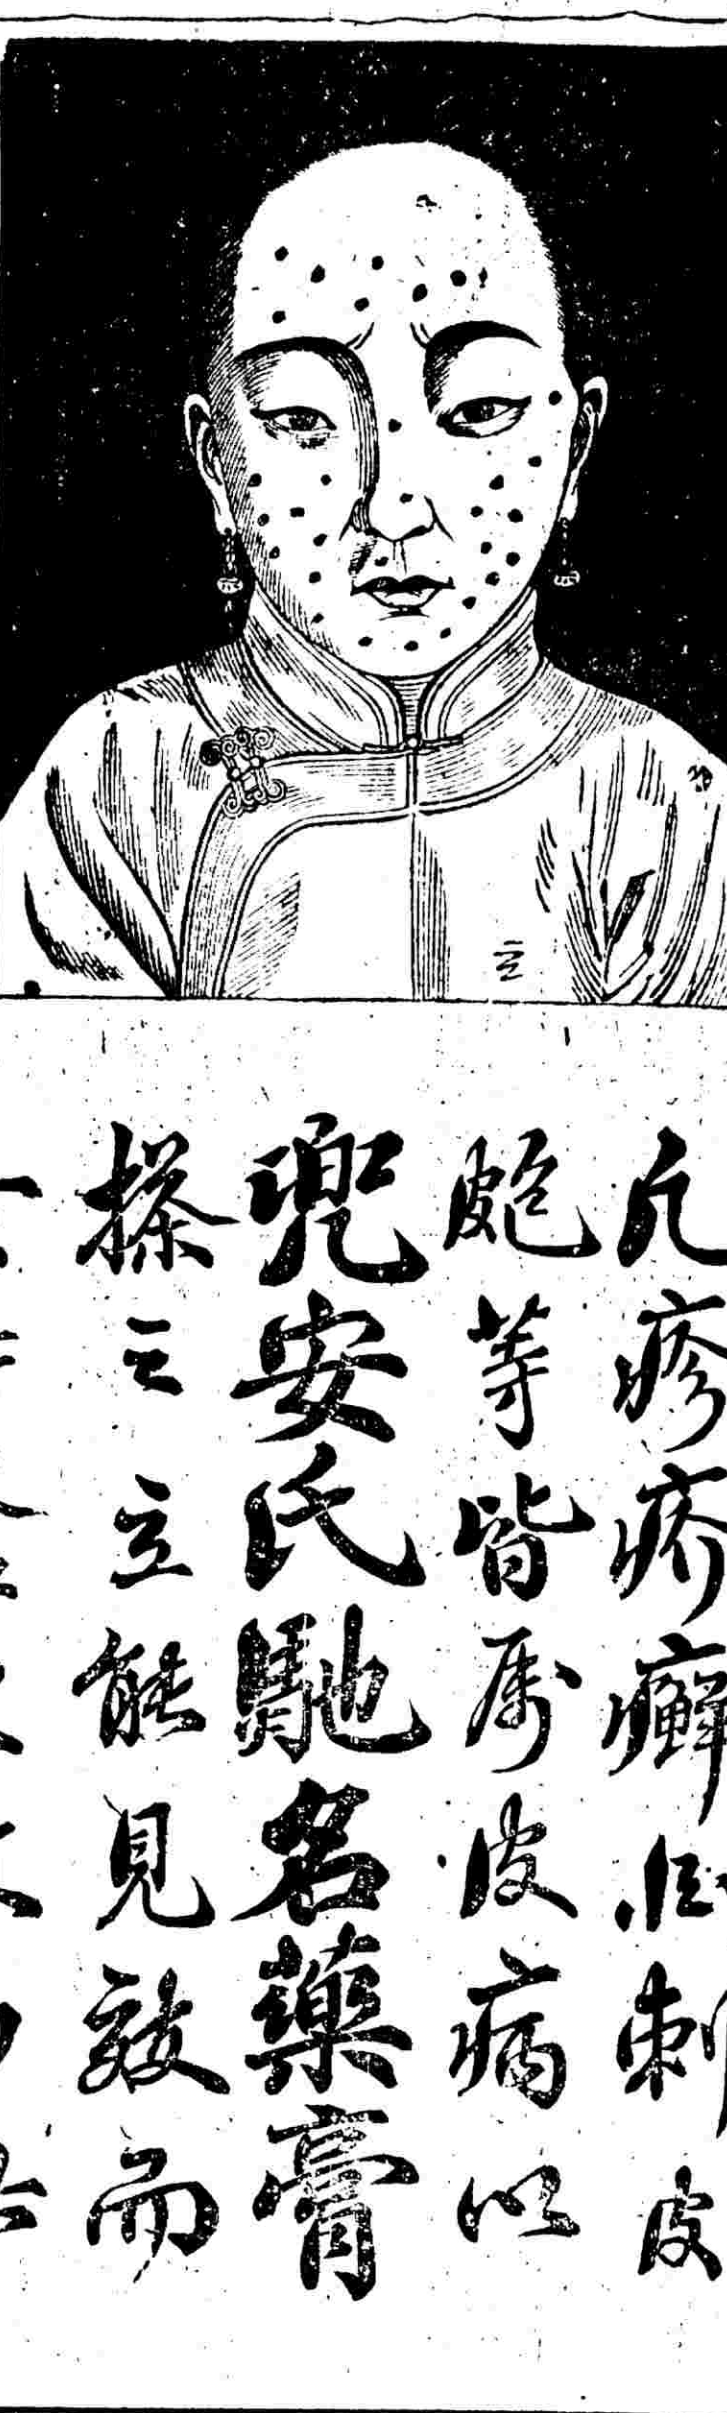 凡疹疥癬痘刺皮
皰等皆属皮病以
兜安氏馳名藥膏
搽之立能見效而